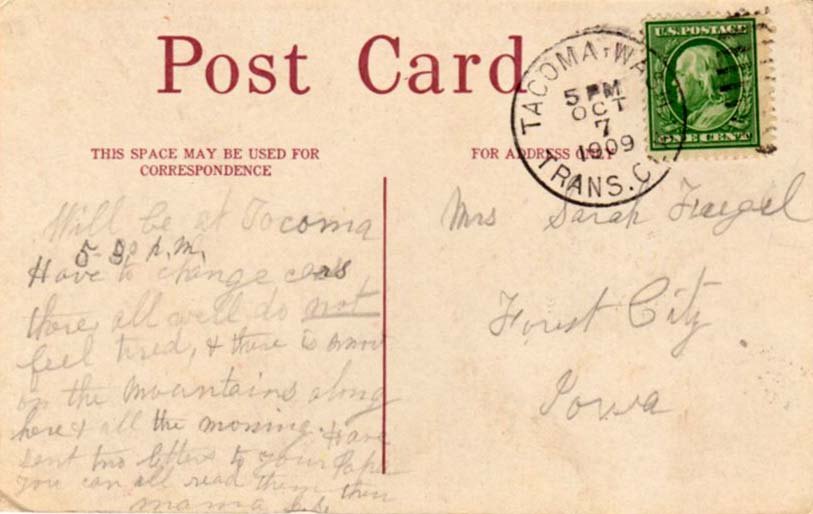 Post Card
U.S. POSTAGE
ONE CENT
TACOMA, WA
5 PM
OCT
7
1909
TRANS. C
THIS SPACE MAY BE USED FOR
CORRESPONDENCE
FOR ADDRESS ONLY
Will be at Tocoma
5-30 P.M.
Have to change cars
there, all well do not
feel tired, & there is snow
on the mountains along
here & all the morning. Have
sent two letters to your Papa
you can all read them then
mama
Mrs Sarah
Forest City
Iowa